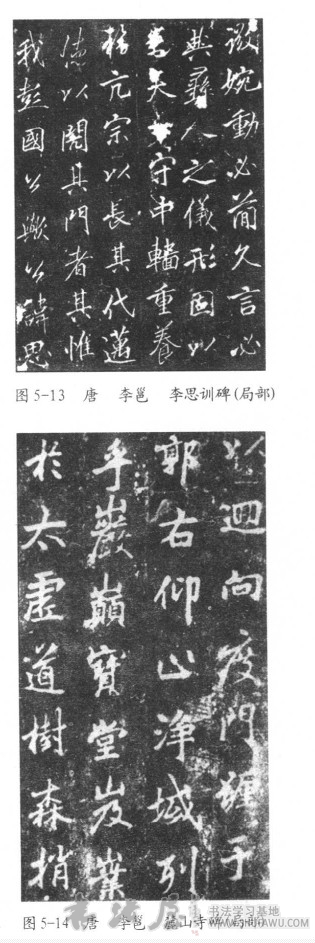 婉動必簡久言必
典彝人之儀形固以
矣夫守中轄重養
福亢宗以長其代邁
德以闢其門者其惟
我彭國公歟公諱思
图 5-13 唐 李邕 李思训碑(局部)
以迴向度門纏于
郭右仰止淨域列
乎巖巔寶堂岌嶪
於太虛道樹森梢
图 5-14 唐 李邕 麓山寺碑(局部)
书法学习基地